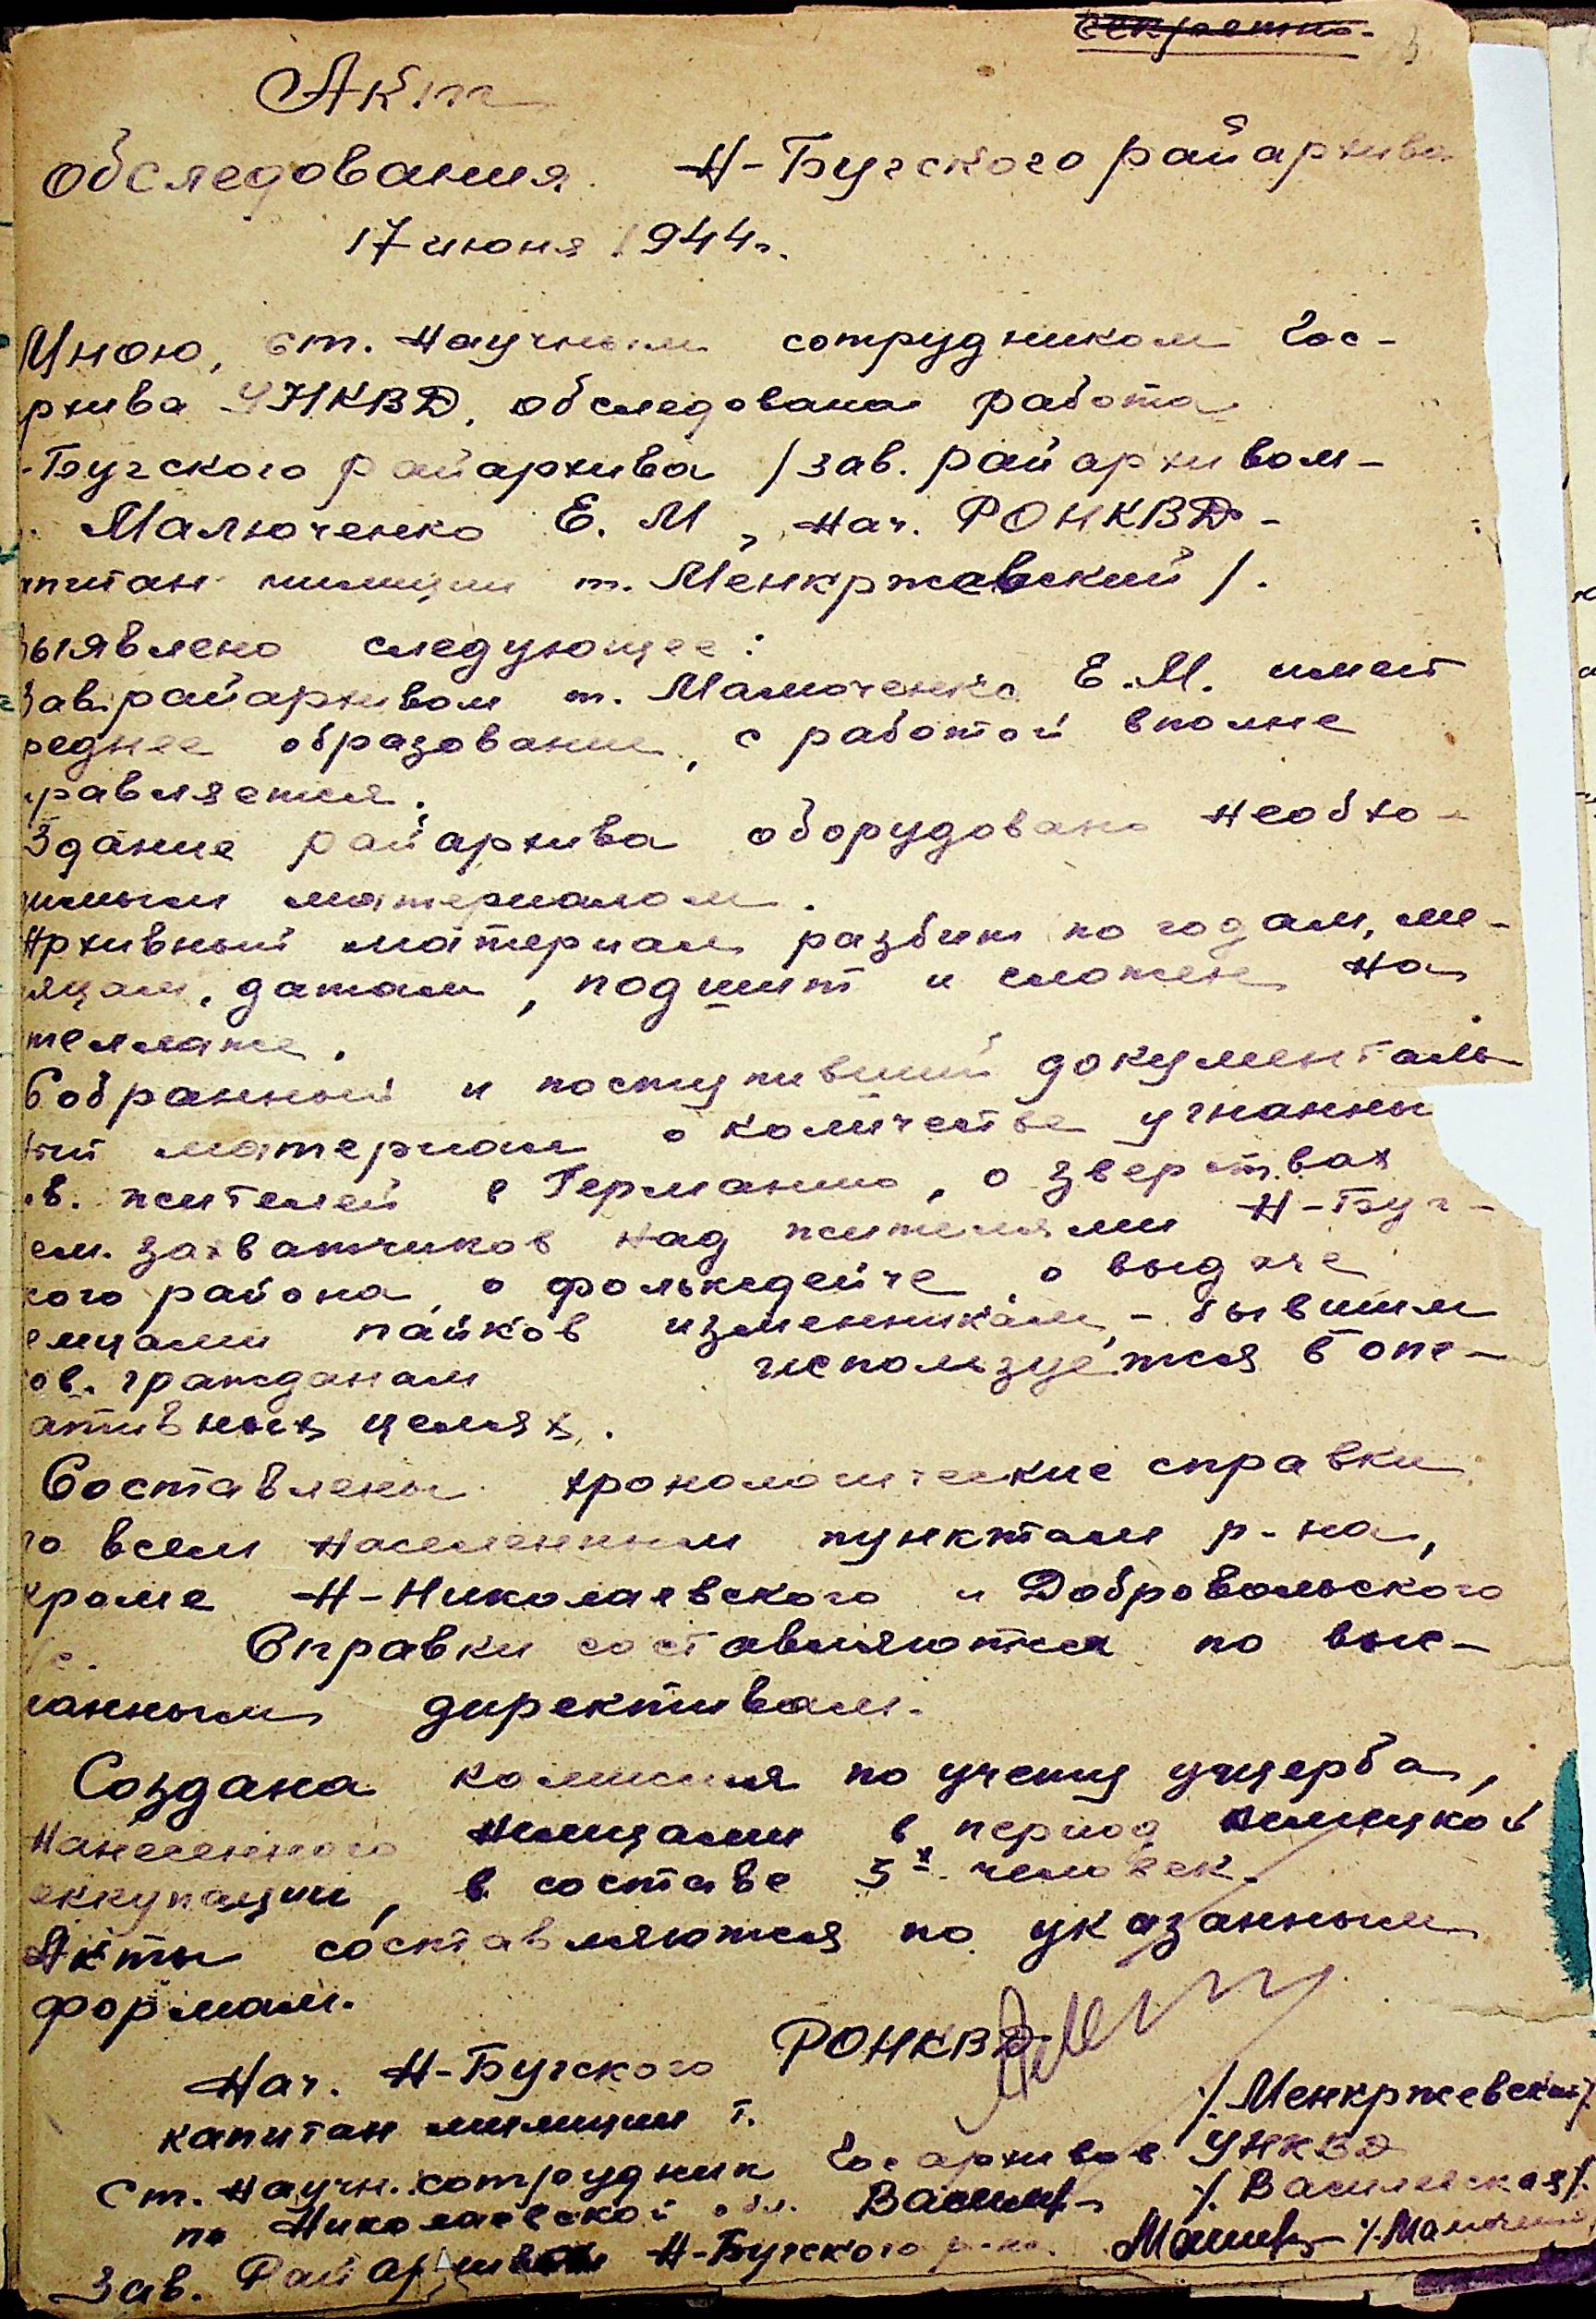 секретно.
Акт
обследования Н-Бугского райархива
17 июня 1944г.
Мною, ст. научным сотрудником Гос-
рхива УНКВД, обследована работа
-Бугского райархива /зав. райархивом-
Малюченко Е. М, нач. РОНКВД-
апитан милиции т. Менкржевский/.
ыявлено следующее:
Зав. райархивом т. Малюченко Е.М. имеет
реднее образование, с работой вполне
правляется.
Здание райархива оборудовано необхо-
имым материалом.
Архивный материал разбит по годам, ме-
яцам, датам, подшит и сложен на
теллаже.
Собранный и поступивший документаль
ный материал о количестве угнанны
ов. жителей в Германию, о зверствах
ем. захватчиков над жителями Н-Буг-
кого района, о фольксдейче, о выдаче
емцами пайков изменникам, - бывшим
ов. гражданам используется в опе-
ативных целях.
Составлены хронологические справки
по всем населенным пунктам р-на,
кроме Н-Николаевского и Добровольского
/с. Справки составляются по выс-
ланным директивам.
Создана комиссия по учету ущерба,
нанесенного немцами в период немецкой
оккупации, в составе 5х человек.
Акты составляются по указанным
формам.
Нач. Н-Бугского РОНКВД
капитан милиции т. /.Менкржевский/.
Ст. научн. сотрудник Госархивов УНКВД
по Николаевской обл. /.Василевская/.
Зав. Райархивом Н-Бугского р-на.